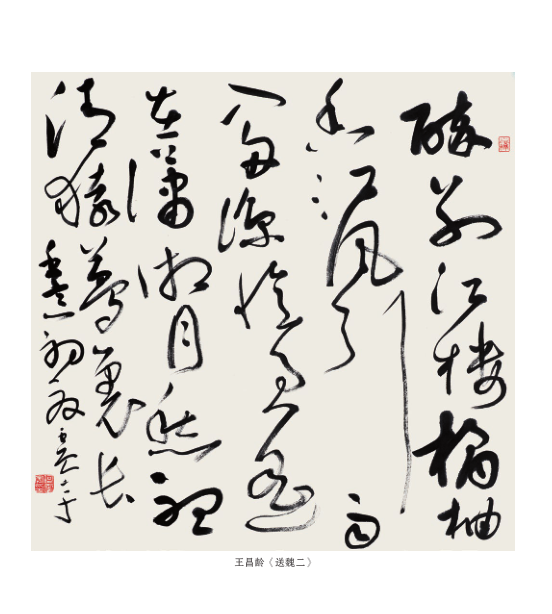 醉别江楼橘柚
香江风引雨
入舟凉忆君遥
在潇湘月愁听
清猿梦里长
初夏
王昌龄《送魏二》